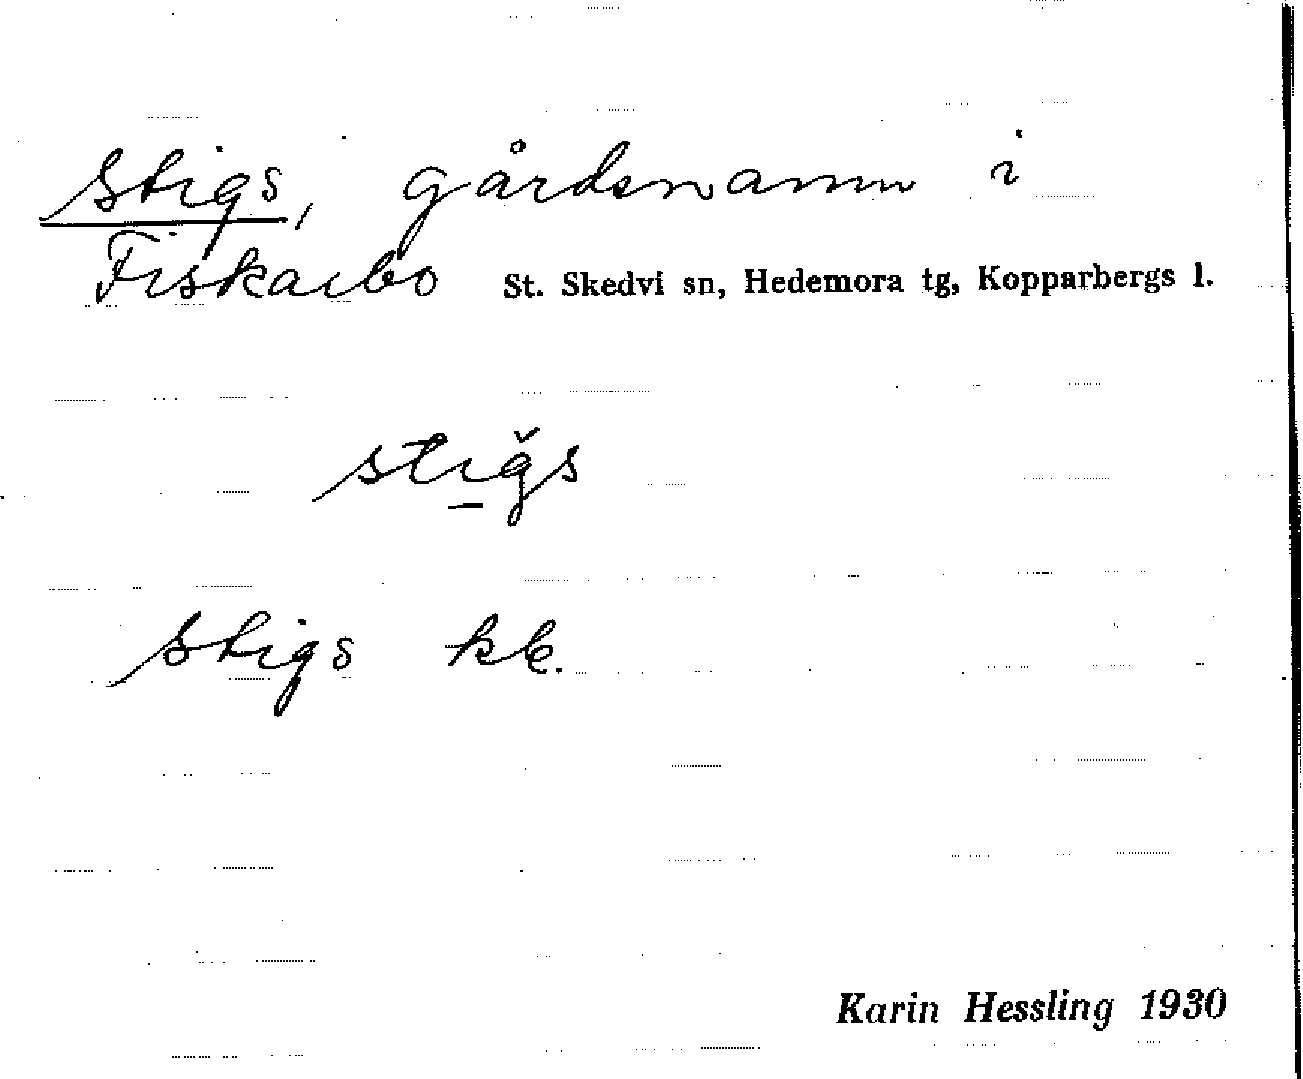 Stigs, gårdsnamn i
Fiskarbo St. Skedvi sn, Hedemora tg, Kopparbergs l.
stı̲ǧs
Stigs kb.
Karin Hessling 1930